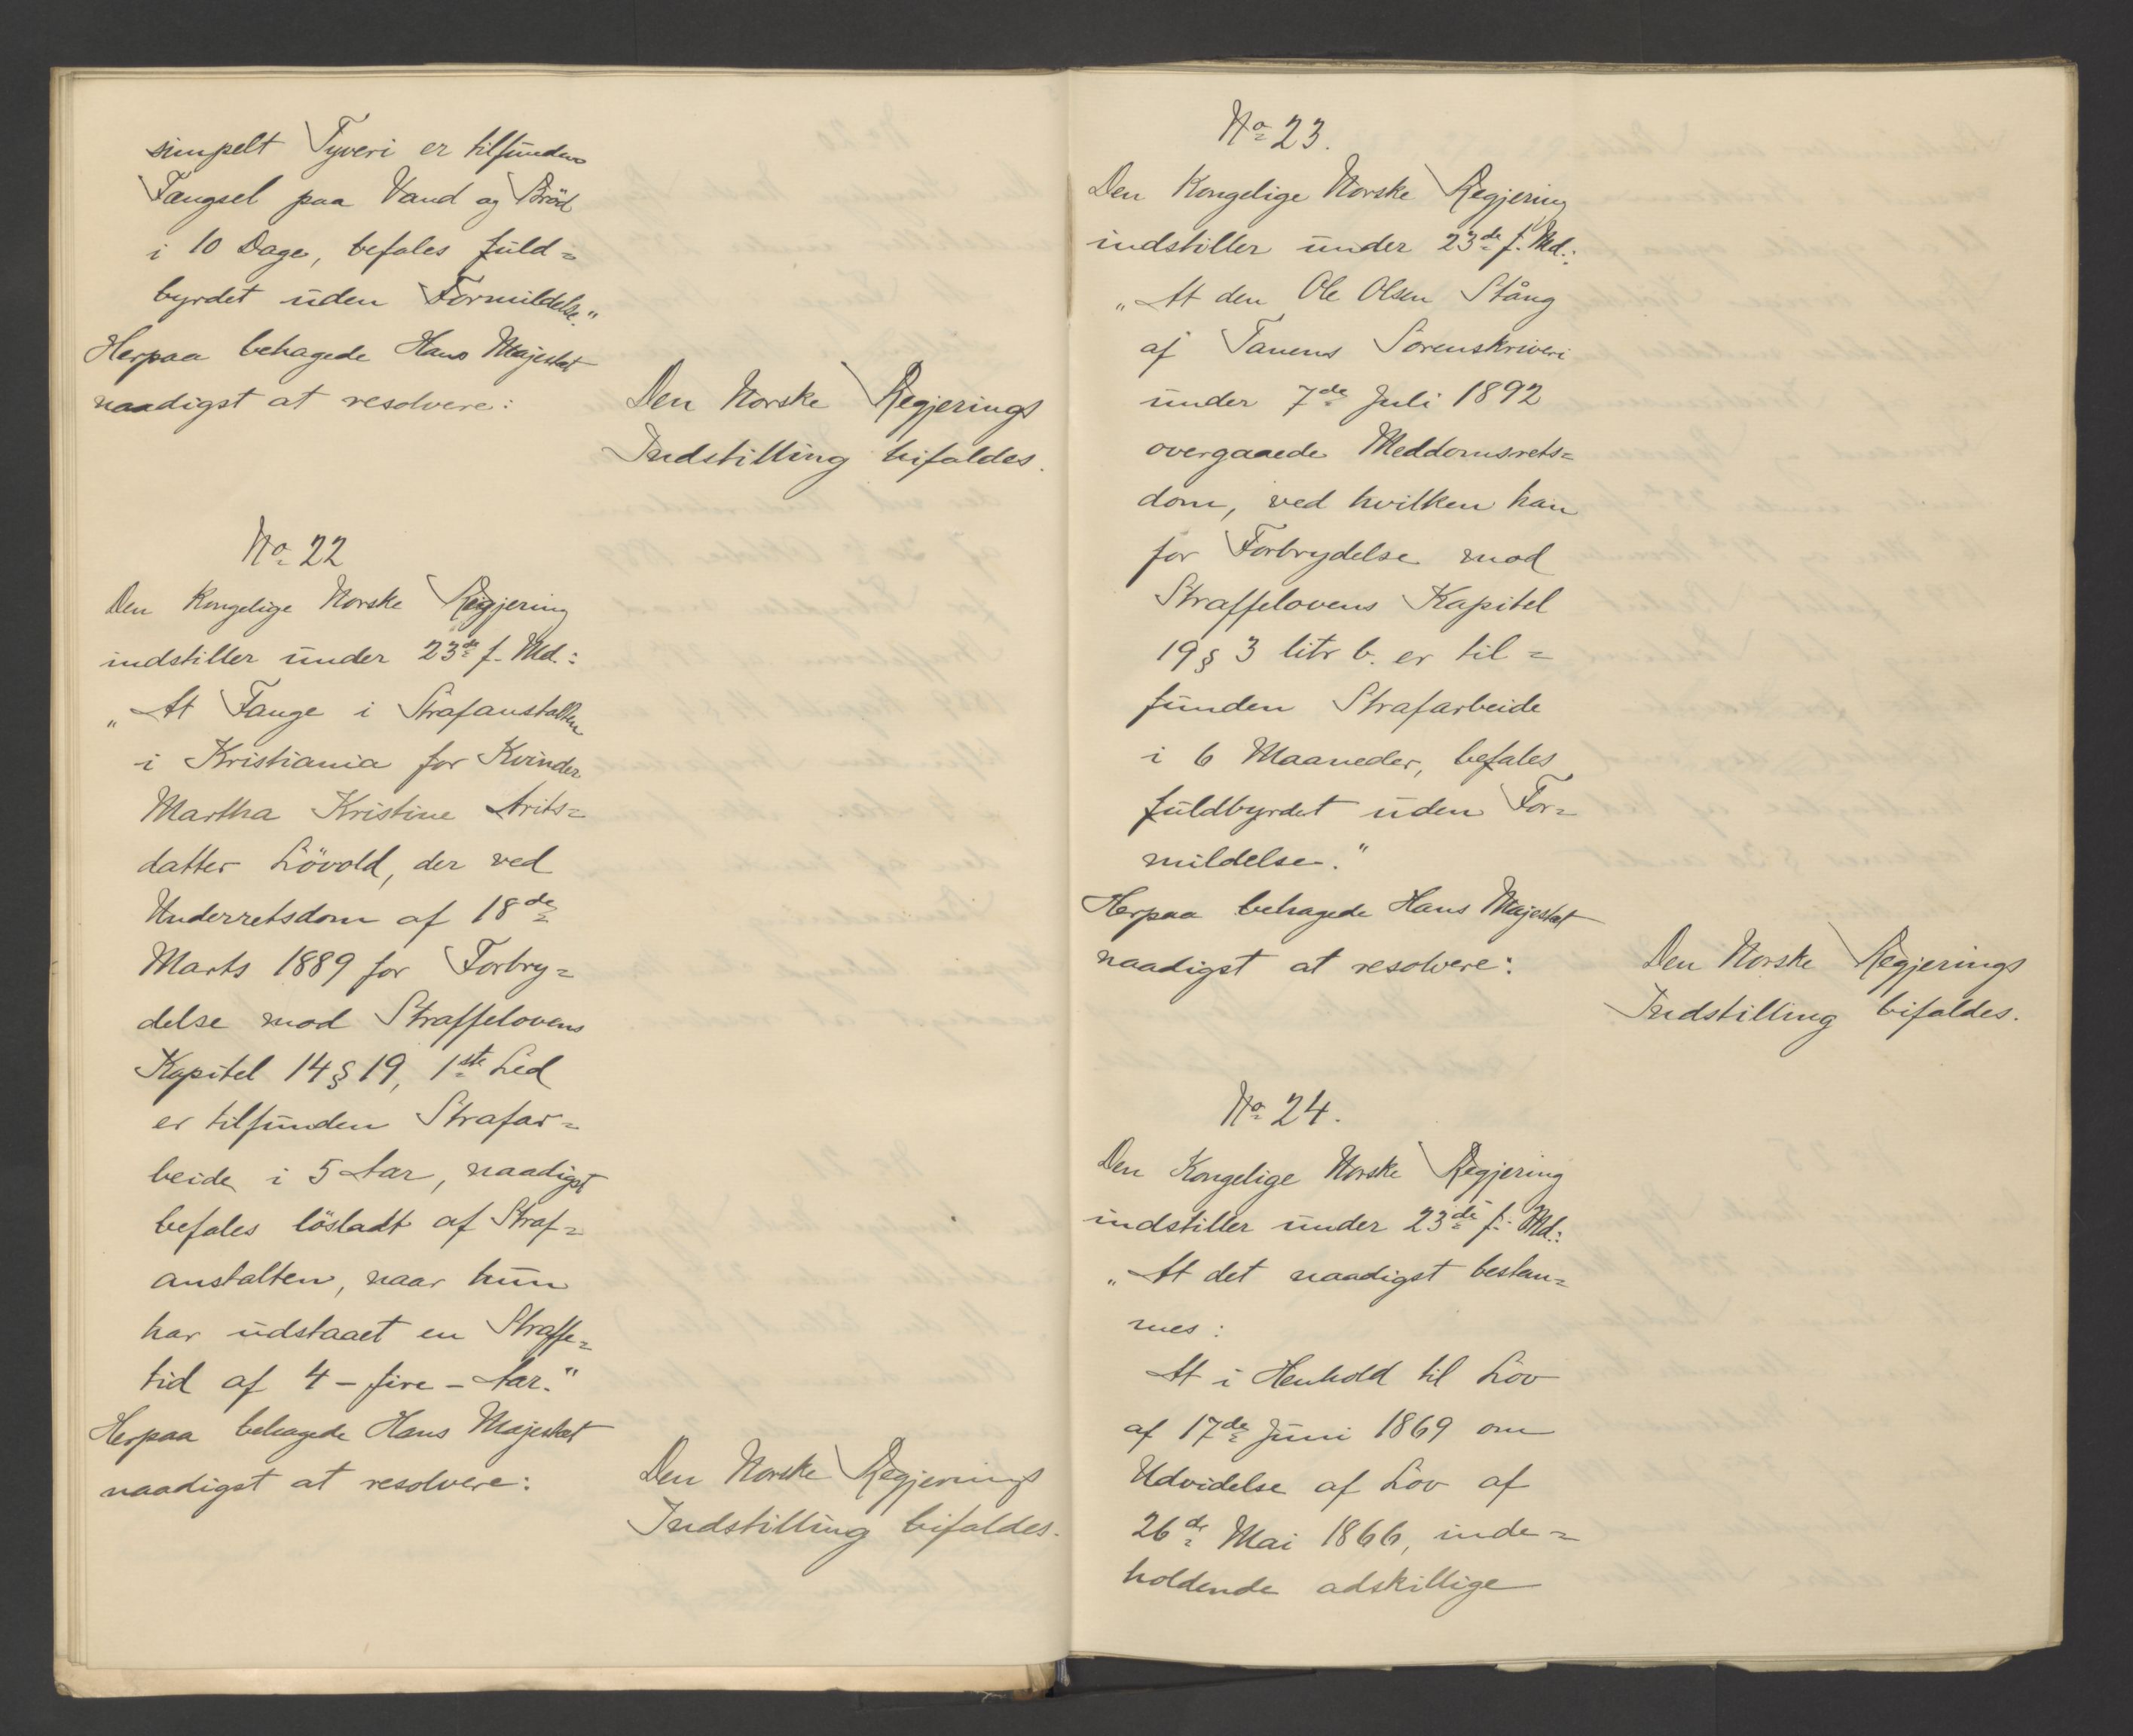 simpelt Tyveri er tilfunden
Fængsel paa Vand og Bröd
i 10 Dage, befales fuld=
byrdet uden Formildelse."
Herpaa behagede Hans Majestæt
naadigst at resolvere:
Den Norske Regjerings
Indstilling bifaldes.
No 22
Den Kongelige Norske Regjering
indstiller under 23de f. Md.:
"At Fange i Strafanstalten
i Kristiania for Kvinder
Martha Kristine Arits=
datter Lövold, der ved
Underretsdom af 18de
Marts 1889 for Forbry=
delse mod Straffelovens
Kapitel 14 § 19, 1ste Led
er tilfunden Strafar=
beide i 5 Aar, naadigst
befales lösladt af Straf=
anstalten, naar hun
har udstaaet en Straffe=
tid af 4 - fire - Aar."
Herpaa behagede Hans Majestæt
naadigst at resolvere:
Den Norske Regjerings
Indstilling bifaldes.
No 23.
Den Kongelige Norske Regjering
indstiller under 23de f. Md.:
"At den Ole Olsen Stång
af Tanens Sorenskriveri
under 7de Juli 1892
overgaaede Meddomsrets=
dom, ved hvilken han
for Forbrydelse mod
Straffelovens Kapitel
19 § 3 litr b. er til=
funden Strafarbeide
i 6 Maaneder, befales
fuldbyrdet uden For=
mildelse."
Herpaa behagede Hans Majestæt
naadigst at resolvere:
Den Norske Regjerings
Indstilling bifaldes.
No 24.
Den Kongelige Norske Regjering
indstiller under 23de f. Md.:
"At det naadigst bestem=
mes:
At i Henhold til Lov
af 17de Juni 1869 om
Udvidelse af Lov af
26de Mai 1866, inde=
holdende adskillige